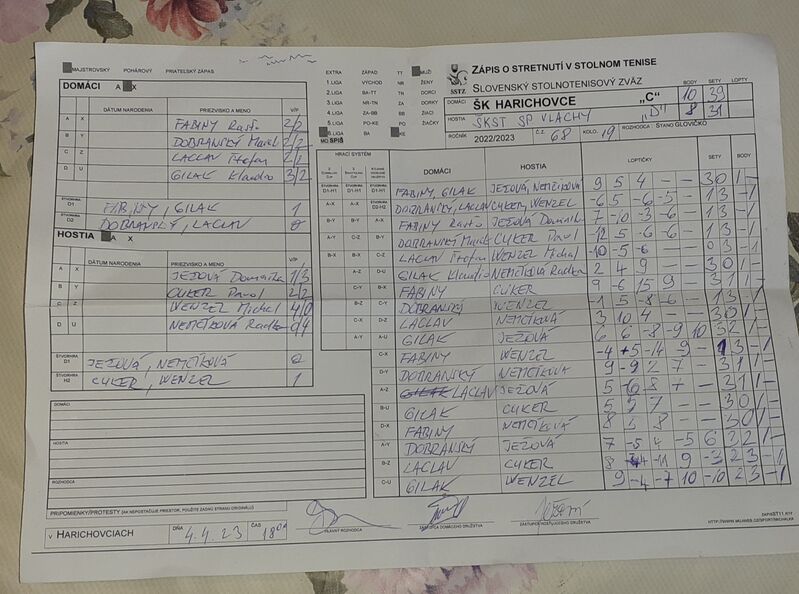 MAJSTROVSKÝ POHÁROVÝ PRIATEĽSKÝ ZÁPAS
DOMÁCI A X
DÁTUM NARODENIA PRIEZVISKO A MENO V/P
A X FABINY Rasťo 2/2
B Y DOBRANSKÝ Marek 2/2
C Z LACLAV Štefan 2/2
D U GILAK Klaudio 3/2
ŠTVORHRA D1 FABINY, GILAK 1
ŠTVORHRA D2 DOBRANSKÝ, LACLAV 0
HOSTIA A X
DÁTUM NARODENIA PRIEZVISKO A MENO V/P
A X JEŽOVÁ Dominika 1/3
B Y CUKER Pavol 2/2
C Z WENZEL Michal 4/0
D U NEMČÍKOVÁ Radka 0/4
ŠTVORHRA JEŽOVÁ, NEMČÍKOVÁ 0
ŠTVORHRA H2 CUKER, WENZEL 1
DOMÁCI
HOSTIA
ROZHODCA
PRIPOMIENKY/PROTESTY (AK NEPOSTAČUJE PRIESTOR, POUŽITE ZADNÚ STRANU ORIGINÁLU)
V HARICHOVCIACH DŇA 4.4.23 ČAS 18⁰⁰
HLAVNÝ ROZHODCA
ZÁSTUPCA DOMÁCEHO DRUŽSTVA
ZÁSTUPCA HOSŤUJÚCEHO DRUŽSTVA
EXTRA ZÁPAD TT MUŽI
1.LIGA VÝCHOD NR ŽENY
2.LIGA BA-TT TN DORCI
3.LIGA NR-TN ZA DORKY
4.LIGA ZA-BB BB ŽIACI
5.LIGA PO-KE PO ŽIAČKY
6.LIGA BA KE
MO SPIŠ
SSTZ
ZÁPIS O STRETNUTÍ V STOLNOM TENISE
SLOVENSKÝ STOLNOTENISOVÝ ZVÄZ
BODY SETY LOPTY
DOMÁCI ŠK HARICHOVCE „C“ 10 39
HOSTIA ŠKST SP. VLACHY „D“ 8 31
ROČNÍK 2022/2023 Č.Z. 68 KOLO. 19 ROZHODCA: ŠTANO GLOVIČKO
HRACÍ SYSTÉM DOMÁCI HOSTIA LOPTIČKY SETY BODY
FABINY, GILAK JEŽOVÁ, NEMČÍKOVÁ 9 5 4 – – 3 0 1 –
DOBRANSKÝ, LACLAV CUKER, WENZEL -6 5 -6 -5 – 1 3 – 1
FABINY Rasťo JEŽOVÁ Dominika 7 -10 -3 -6 – 1 3 – 1
DOBRANSKÝ Marek CUKER Pavol -12 5 -6 -6 – 1 3 – 1
LACLAV Štefan WENZEL Michal -10 -5 -6 – – 0 3 – 1
GILAK Klaudio NEMČÍKOVÁ Radka 2 4 9 – – 3 0 1 –
FABINY CUKER 9 -6 15 9 – 3 1 1 –
DOBRANSKÝ WENZEL -1 5 -8 -6 – 1 3 – 1
LACLAV NEMČÍKOVÁ 3 10 4 – – 3 0 1 –
GILAK JEŽOVÁ 6 6 -8 -9 10 3 2 1 –
FABINY WENZEL -4 +5 -14 9 – 1 3 – 1
DOBRANSKÝ NEMČÍKOVÁ 9 -9 2 7 – 3 1 1 –
LACLAV JEŽOVÁ
GILAK CUKER 5 5 7 – – 3 0 1 –
FABINY NEMČÍKOVÁ
DOBRANSKÝ JEŽOVÁ 7 -5 4 -5 6
LACLAV CUKER 2 3 – 1
GILAK WENZEL 9 -4 -7 10 -10 2 3 – 1